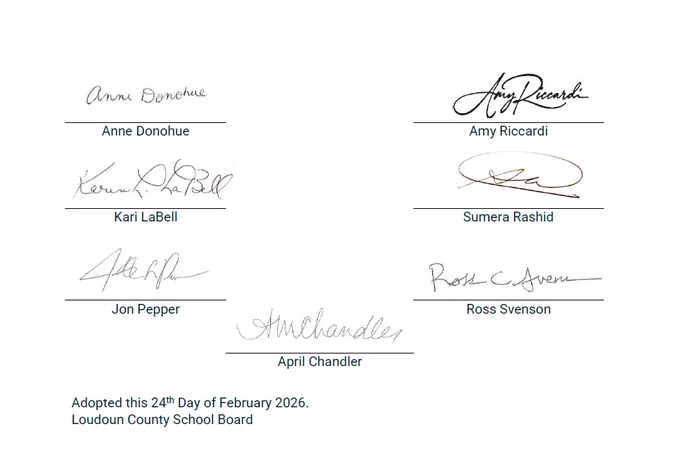 Anne Donohue
Amy Riccardi
Anne Donohue
Amy Riccardi
Karen L. LaBell
Kari LaBell
Sumera Rashid
Jon Pepper
Ross C Svenson
Ross Svenson
AMChandler
April Chandler
Adopted this 24th Day of February 2026.
Loudoun County School Board